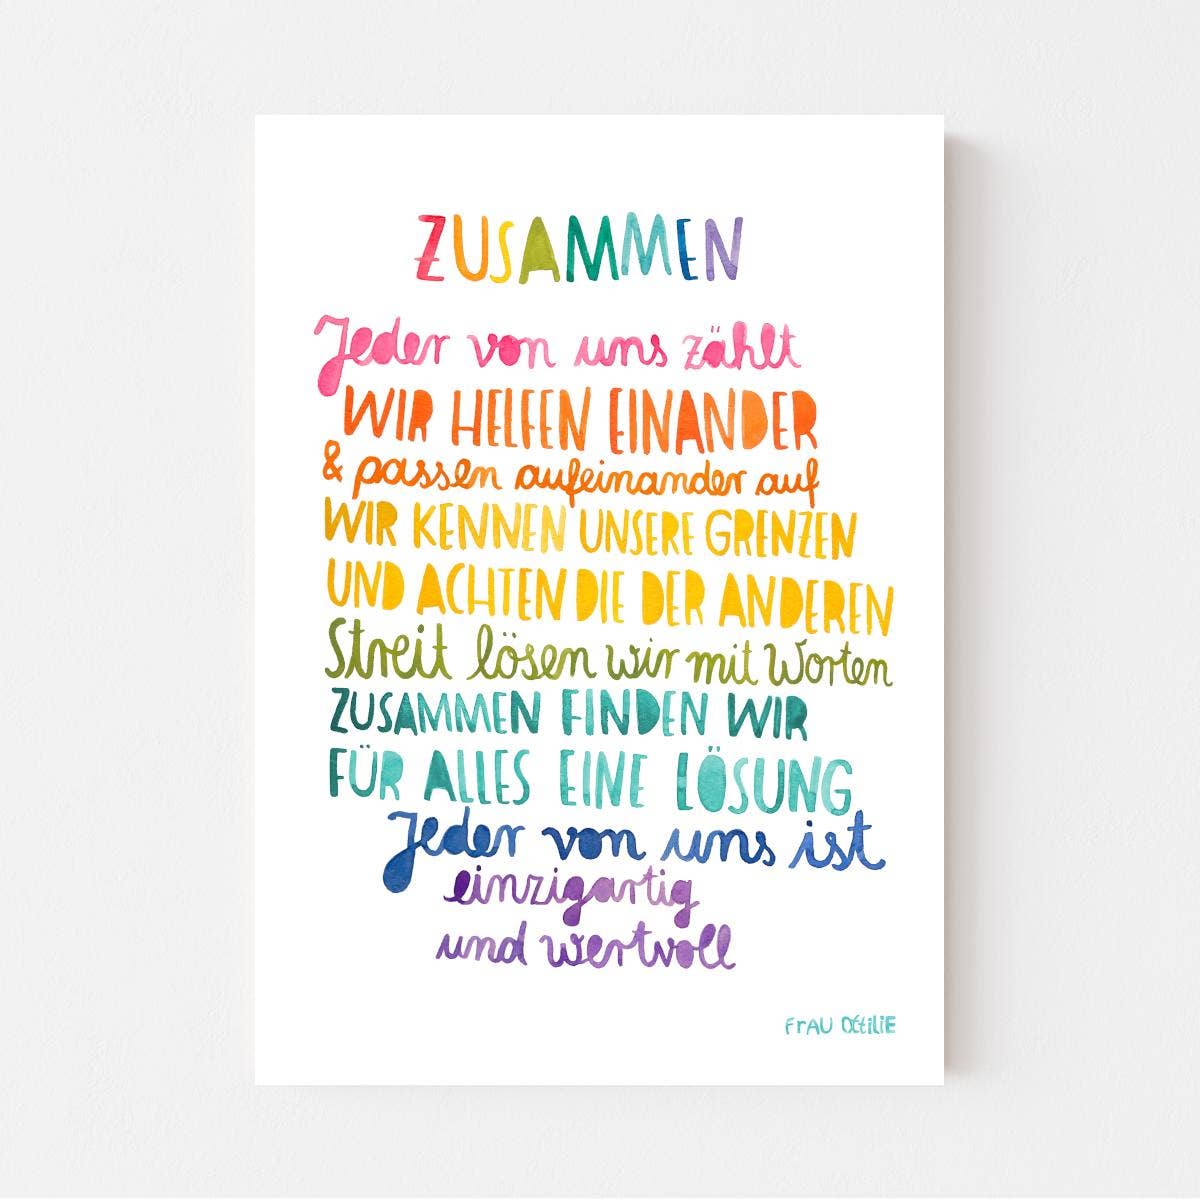 ZUSAMMEN
Jeder von uns zählt
WIR HELFEN EINANDER
& passen aufeinander auf
WIR KENNEN UNSERE GRENZEN
UND ACHTEN DIE DER ANDEREN
Streit lösen wir mit Worten
ZUSAMMEN FINDEN WIR
FÜR ALLES EINE LÖSUNG
Jeder von uns ist
einzigartig
und wertvoll
FrAU OttiliE